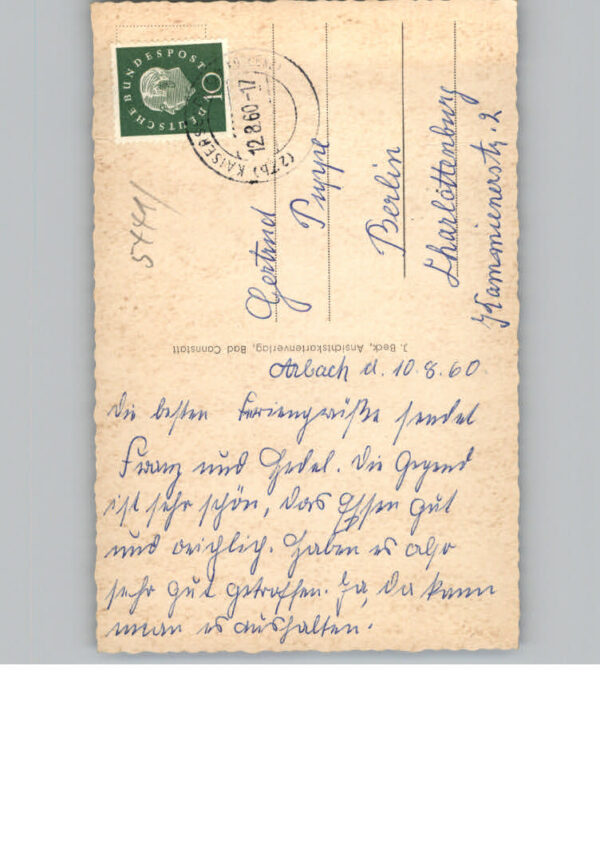 DEUTSCHE BUNDESPOST
10
12.8.60-17
(27b) KAISERS
54441
Gertrud
Puppe
Berlin
Charlottenburg
Kamminerstr. 2
J. Beck, Ansichtskartenverlag, Bad Cannstatt
Arbach d. 10.8.60
Die besten Feriengrüße sendet
Franz und Hedel. Die Gegend
ist sehr schön, das Essen gut
und reichlich. Haben es also
sehr gut getroffen. Ja, da kann
man es aushalten.